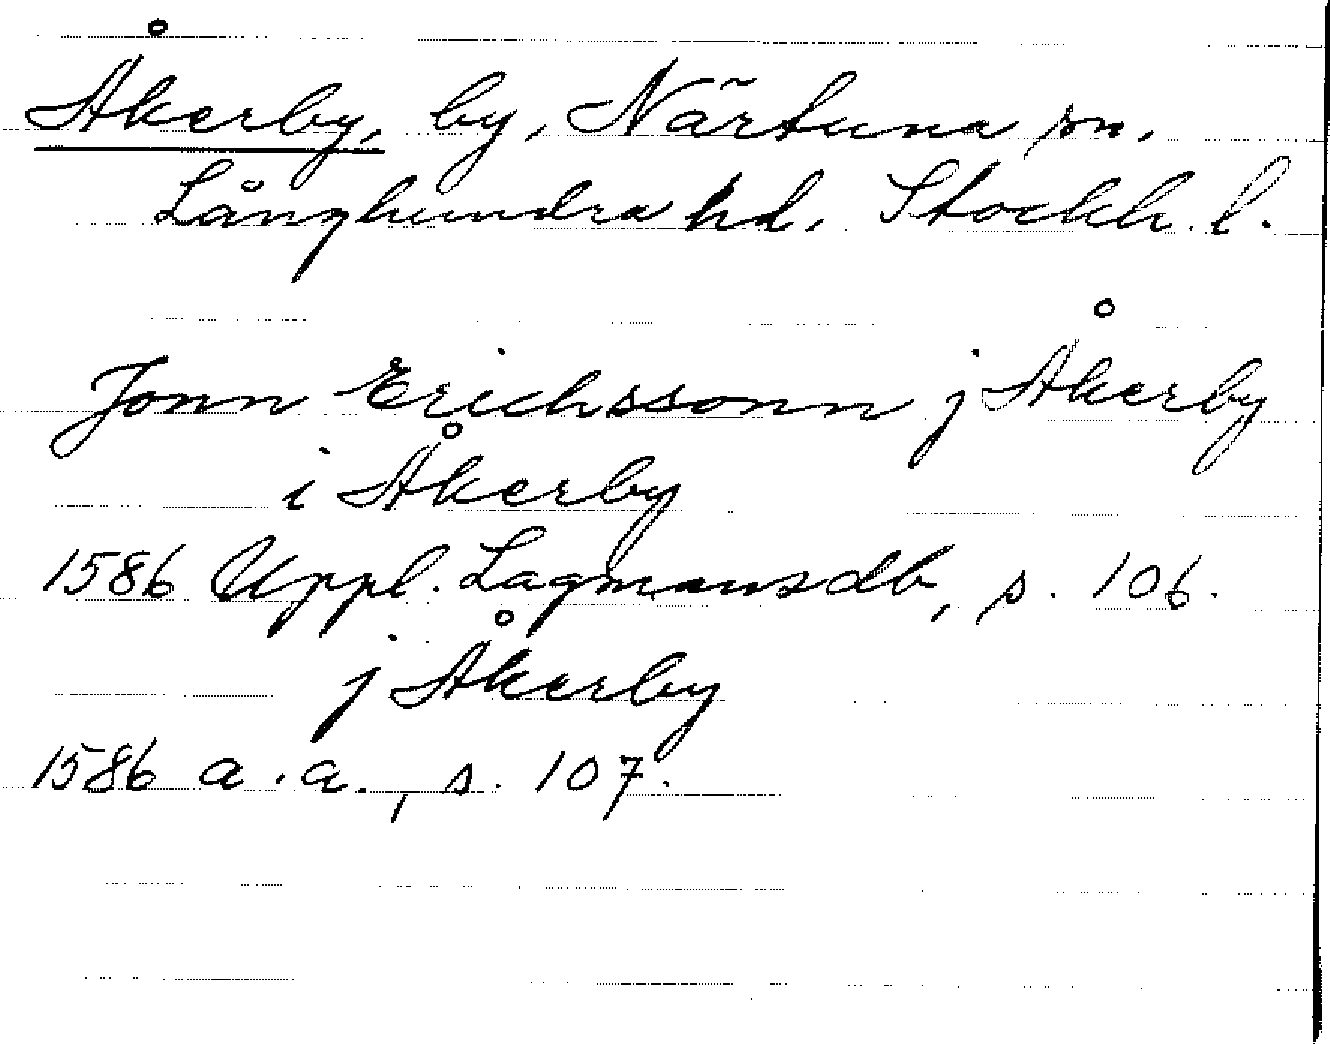 Åkerby, by, Närtuna sn.
Långhundra hd, Stockh. l.
Jonn Erichssonn j Åkerby
i Åkerby
1586 Uppl. Lagmansdb, s. 106.
j Åkerby
1586 a.a., s. 107.